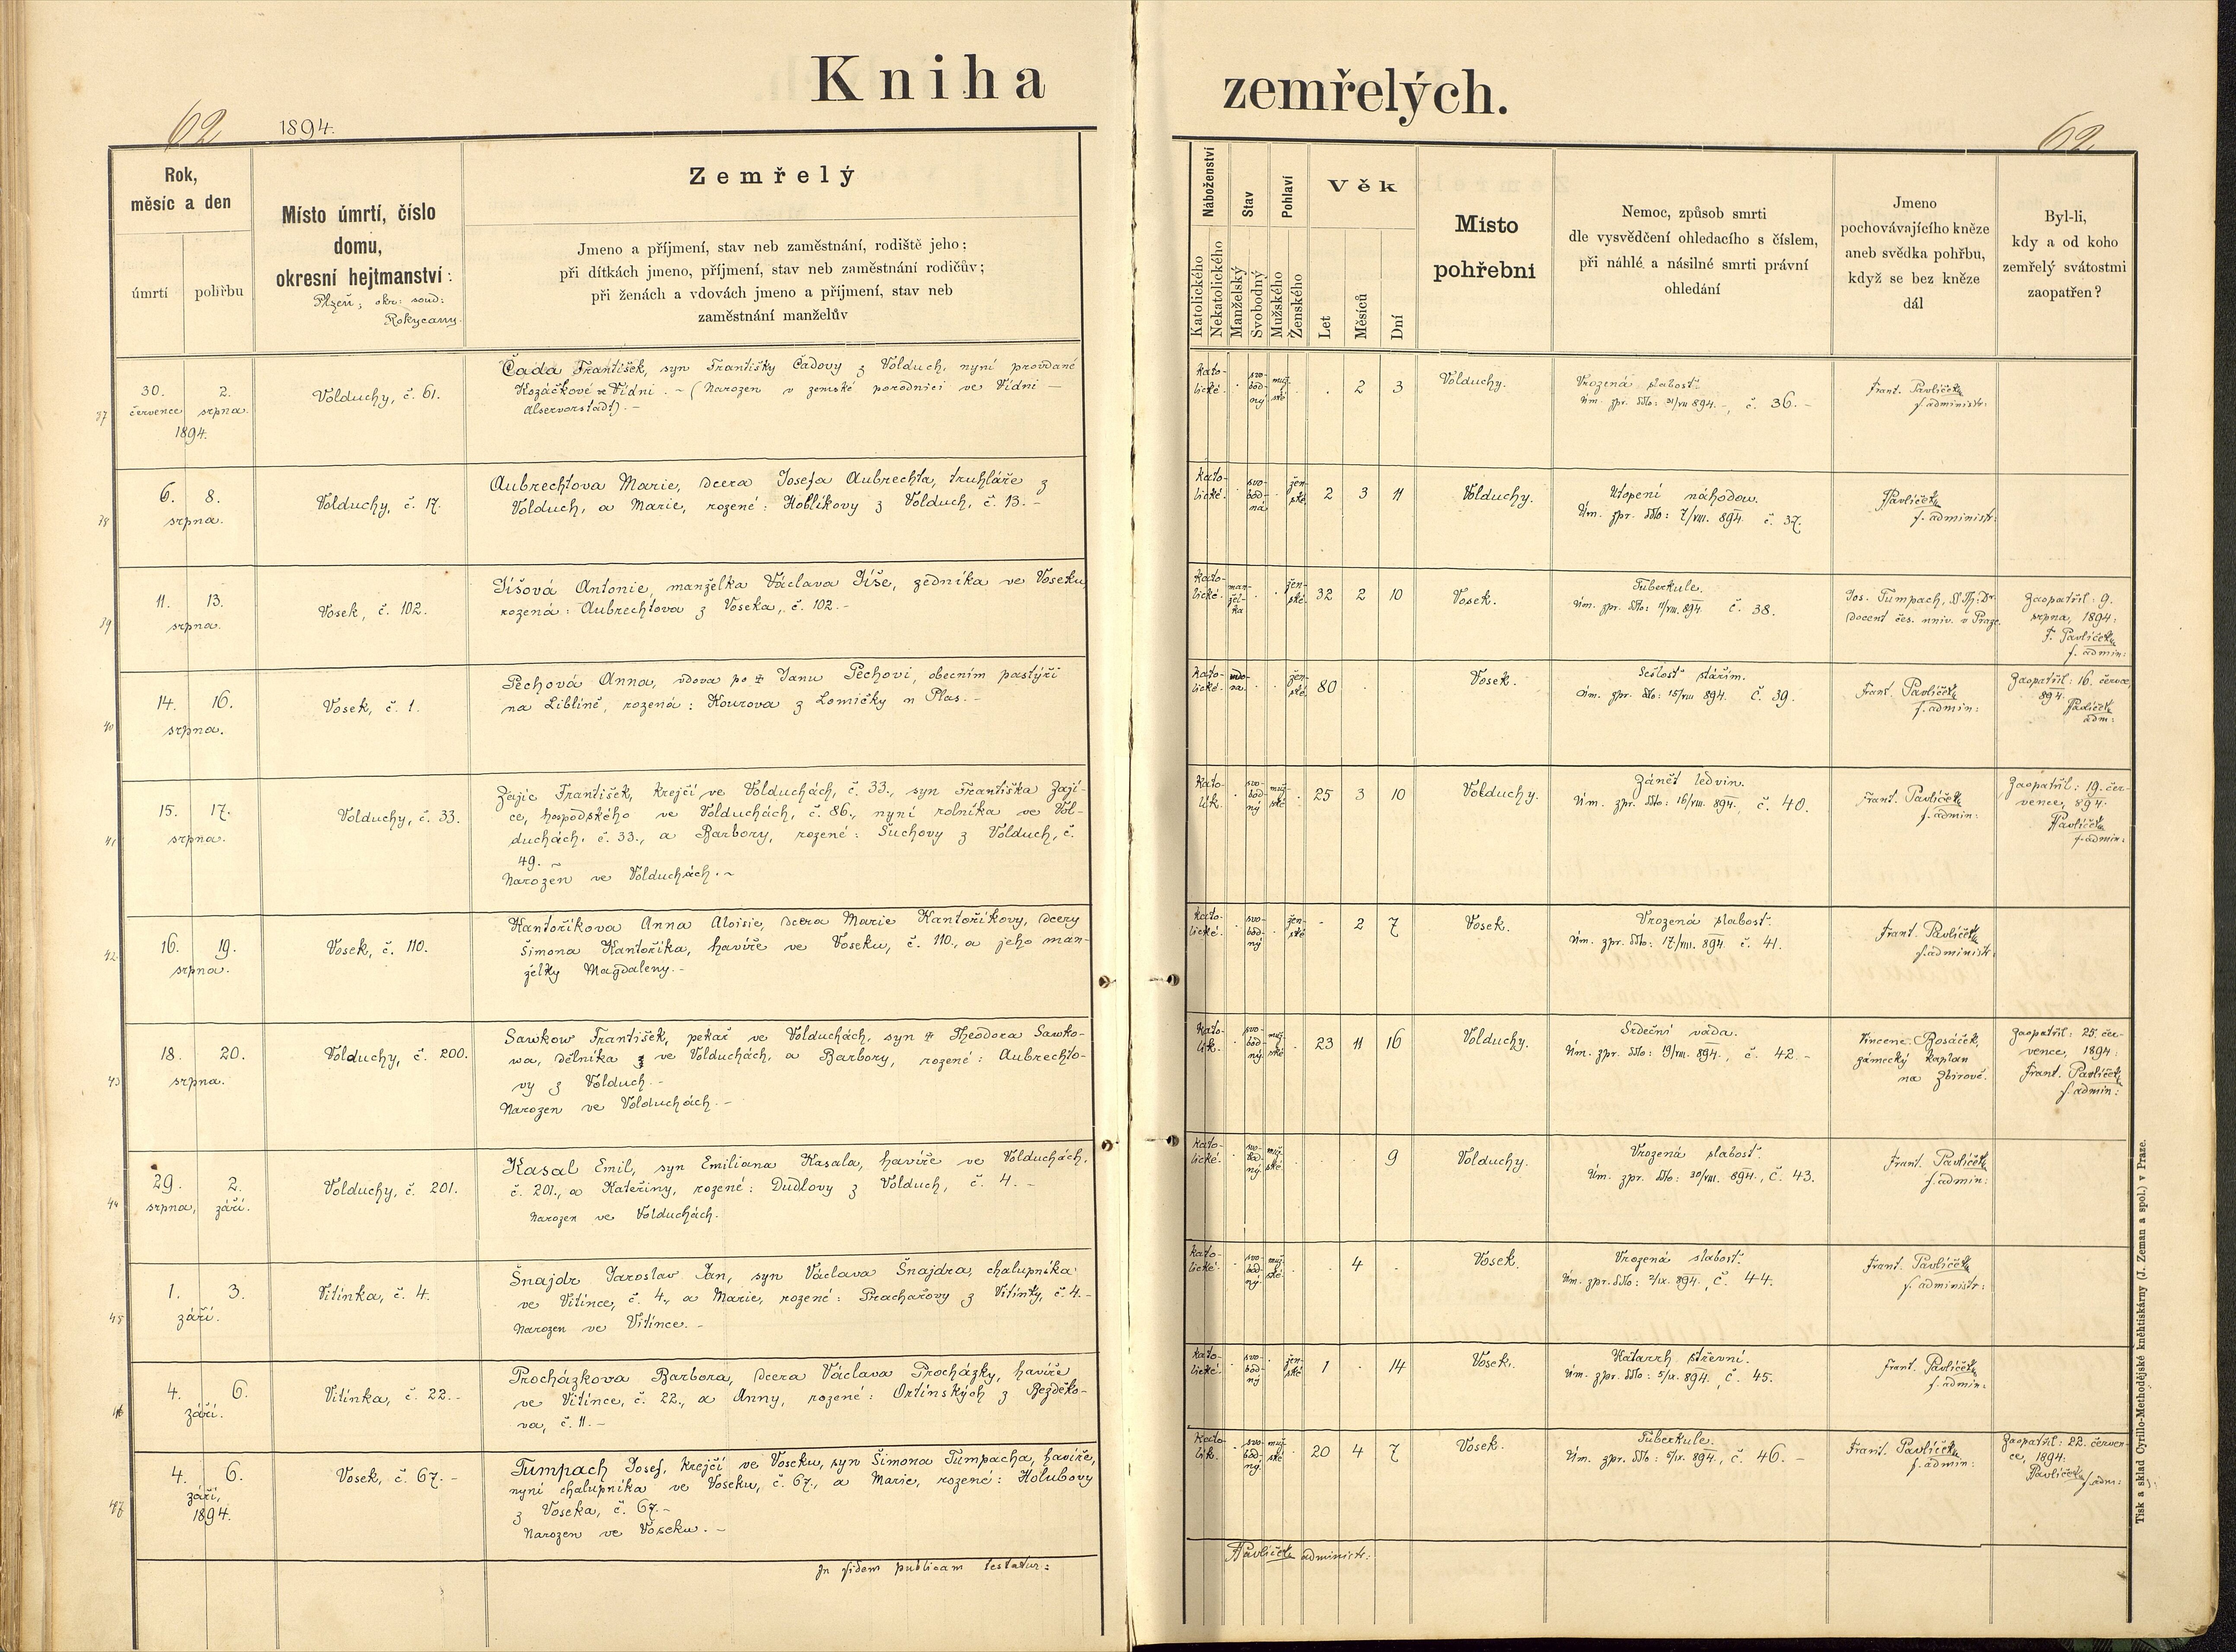 Kniha zemřelých.
62
1894.
62
Rok,
měsíc a den
úmrtí
pohřbu
Místo úmrtí, číslo
domu,
okresní hejtmanství:
Plzeň; okr: soud:
Rokycany.
Zemřelý
Jmeno a příjmení, stav neb zaměstnání, rodiště jeho;
při dítkách jmeno, příjmení, stav neb zaměstnání rodičův;
při ženách a vdovách jmeno a příjmení, stav neb
zaměstnání manželův
Náboženství
Katolického
Nekatolického
Stav
Manželský
Svobodný
Pohlaví
Mužského
Ženského
Věk
Let
Měsíců
Dní
Místo
pohřební
Nemoc, způsob smrti
dle vysvědčení ohledacího s číslem,
při náhlé a násilné smrti právní
ohledání
Jmeno
pochovávajícího kněze
aneb svědka pohřbu,
když se bez kněze
dál
Byl-li,
kdy a od koho
zemřelý svátostmi
zaopatřen?
37
30. 2.
července srpna
1894.
Volduchy, č. 61.
Čada František, syn Františky Čadovy z Volduch, nyní provdané
Kozáčkové ve Vídni. – (Narozen v zemské porodnici ve Vídni –
Alservorstadt). –
kato-
lické.
svo-
bod-
ný
muž-
ské
2 3
Volduchy.
Vrozená slabost.
Úm. zpr. ddto: 31/VII 894. –, č. 36. –
Frant. Pavlíček
f. administr:
38
6. 8.
srpna.
Volduchy, č. 17.
Aubrechtova Marie, dcera Josefa Aubrechta, truhláře z
Volduch, a Marie, rozené: Hoblíkovy z Volduch, č. 13. –
kato-
lické.
svo-
bod-
ná
žen-
ské
2 3 11
Volduchy.
Utopení náhodou.
Úm. zpr. ddto: 7/VIII. 894. č. 37.
FPavlíček
f. administr:
39
11. 13.
srpna.
Vosek, č. 102.
Jíšová Antonie, manželka Václava Jíše, zedníka ve Voseku
rozená: Aubrechtova z Voseka, č. 102. –
kato-
lické.
man-
žel-
ka
žen-
ské
32 2 10
Vosek.
Tuberkule.
Úm. zpr. ddto: 11/VIII. 894. č. 38.
Jos. Tumpach, D Th: Dr.
docent čes. univ. v Praze.
Zaopatřil: 9.
srpna, 1894:
F. Pavlíček
f. admin:
40
14. 16.
srpna.
Vosek, č. 1.
Pechová Anna, vdova po † Janu Pechovi, obecním pastýři
na Liblíně, rozená: Kourova z Lomičky u Plas. –
kato-
lické.
vdo-
va.
žen-
ské
80
Vosek.
Sešlost stářím.
Úm. zpr. ddto: 15/VIII 894. č. 39.
Frant. Pavlíček
f. admin:
Zaopatřil: 16. července,
894.
FPavlíček
adm:
41
15. 17.
srpna.
Volduchy, č. 33.
Zajíc František, krejčí ve Volduchách, č. 33., syn Františka Zají-
ce, hospodského ve Volduchách, č. 86., nyní rolníka ve Vol-
duchách, č. 33., a Barbory, rozené: Suchovy z Volduch, č.
49. –
Narozen ve Volduchách. –
kato-
lík.
svo-
bod-
ný
muž-
ské
25 3 10
Volduchy.
Zánět ledvin.
Úm. zpr. ddto: 16/VIII. 894., č. 40.
Frant. Pavlíček
f. admin:
Zaopatřil: 19. čer-
vence, 894.
FPavlíček
f. admin:
42
16. 19.
srpna.
Vosek, č. 110.
Kantoříkova Anna Aloisie, dcera Marie Kantoříkovy, dcery
Šimona Kantoříka, havíře ve Voseku, č. 110., a jeho man-
želky Magdaleny. –
kato-
lické.
svo-
bod-
ný
žen-
ské
2 7
Vosek.
Vrozená slabost.
Úm. zpr. ddto: 17/VIII. 894. č. 41.
Frant. Pavlíček
f. administr:
43
18. 20.
srpna.
Volduchy, č. 200.
Sawkow František, pekař ve Volduchách, syn † Theodora Sawko-
wa, dělníka ve Volduchách, a Barbory, rozené: Aubrechto-
vy z Volduch. –
Narozen ve Volduchách. –
kato-
lík.
svo-
bod-
ný
muž-
ské
23 11 16
Volduchy.
Srdeční váda.
Úm. zpr. ddto: 19/VIII. 894., č. 42. –
Vincenc Rosáček,
zámecký kaplan
na Zbirově.
Zaopatřil: 25. čer-
vence, 1894:
Frant. Pavlíček
f. admin:
44
29. 2.
srpna, září.
Volduchy, č. 201.
Kasal Emil, syn Emiliana Kasala, havíře ve Volduchách,
č. 201., a Kateřiny, rozené: Dudlovy z Volduch, č. 4. –
Narozen ve Volduchách.
kato-
lické.
svo-
bod-
ný
muž-
ské
9
Volduchy.
Vrozená slabost.
Úm. zpr. ddto: 30/VIII. 894., č. 43.
Frant. Pavlíček
f. admin:
45
1. 3.
září.
Vitinka, č. 4.
Šnajdr Jaroslav Jan, syn Václava Šnajdra, chalupníka
ve Vitínce, č. 4., a Marie, rozené: Prachařovy z Vitínky, č. 4. –
Narozen ve Vitínce. –
kato-
lické.
svo-
bod-
ný
muž-
ské
4
Vosek.
Vrozená slabost.
Úm. zpr. ddto: 2/IX. 894., č. 44.
Frant. Pavlíček
f. administr:
46
4. 6.
září.
Vitinka, č. 22. –
Procházkova Barbora, dcera Václava Procházky, havíře
ve Vitínce, č. 22., a Anny, rozené: Ortínských z Bezděko-
va, č. 11. –
kato-
lické.
svo-
bod-
ný
žen-
ské
1 14
Vosek.
Katarrh střevní.
Úm. zpr. ddto: 5/IX. 894., č. 45.
Frant. Pavlíček
f. admin:
47
4. 6.
září,
1894.
Vosek, č. 67. –
Tumpach Josef, krejčí ve Voseku, syn Šimona Tumpacha, havíře,
nyní chalupníka ve Voseku, č. 67., a Marie, rozené: Holubovy
z Voseka, č. 67. –
Narozen ve Voseku. –
kato-
lík.
svo-
bod-
ný
muž-
ské
20 4 7
Vosek.
Tuberkule.
Úm. zpr. ddto: 5/IX. 894., č. 46. –
Frant. Pavlíček
f. admin:
Zaopatřil: 22. červen-
ce, 1894.
Pavlíček f. adm:
In fidem publicam testatur:
FPavlíček administr:
Tisk a sklad Cyrillo-Methodějské knihtiskárny (J. Zeman a spol.) v Praze.